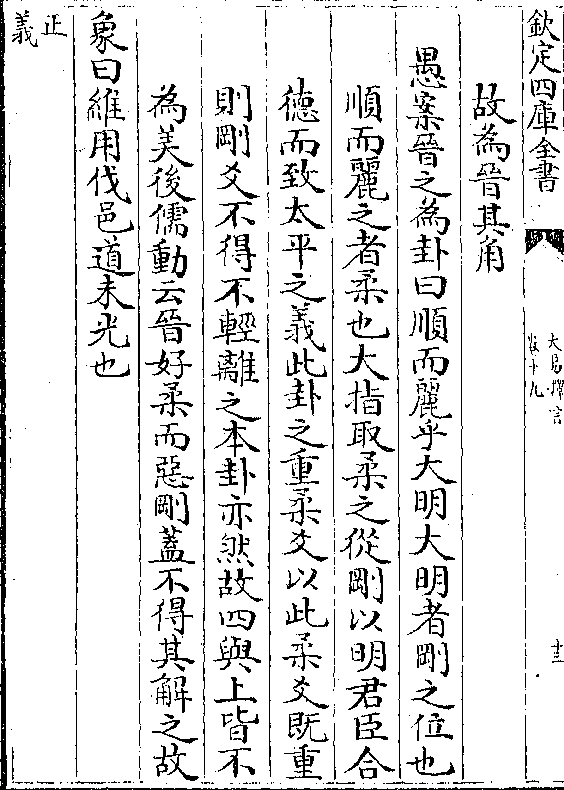 欽定四庫全書
大易擇言
卷十九
十三
故為晉其角
愚案晉之為卦曰順而麗乎大明大明者剛之位也
順而麗之者柔也大指取柔之從剛以明君臣合
德而致太平之義此卦之重柔爻以此柔爻既重
則剛爻不得不輕離之本卦亦然故四與上皆不
為美後儒動云晉好柔而惡剛蓋不得其解之故
象曰維用伐邑道未光也
正
義